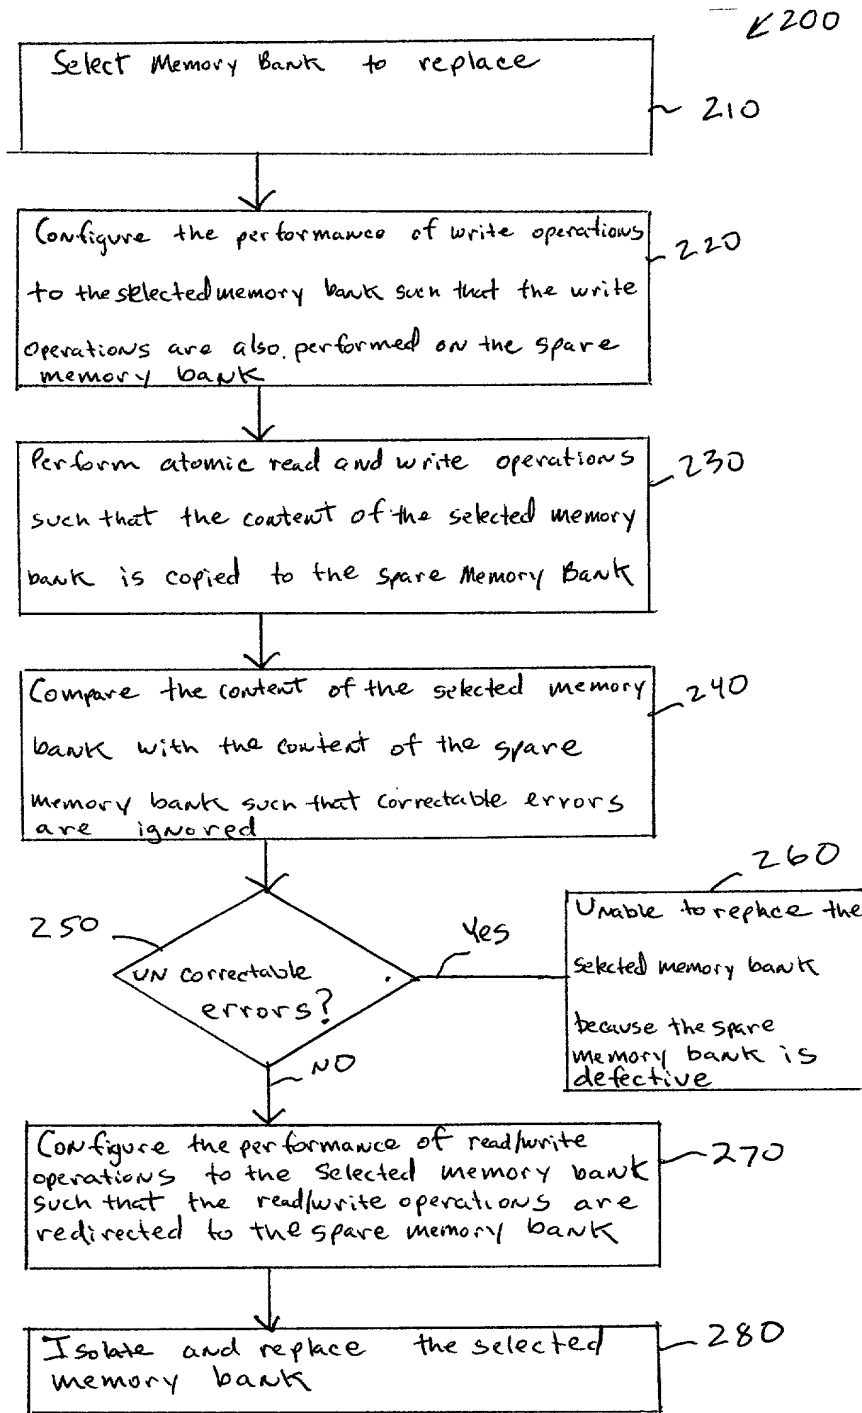 200
Select Memory Bank to replace
210
Configure the performance of write operations
220
to the selected memory bank such that the write
operations are also performed on the spare
memory bank
Perform atomic read and write operations
230
such that the content of the selected memory
bank is copied to the spare Memory Bank
Compare the content of the selected memory
240
bank with the content of the spare
memory bank such that correctable errors
are ignored
250
uncorrectable
errors?
Yes
NO
260
Unable to replace the
selected memory bank
because the spare
memory bank is
defective
Configure the performance of read/write
operations to the selected memory bank
270
such that the read/write operations are
redirected to the spare memory bank
Isolate and replace the selected
280
memory bank